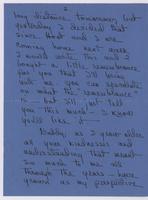 2
long distance tomorrow, but
yesterday I decided that
since Hoot and I are
coming home next week
I would write this and I
bought a little remembrance
for you that I'll bring
with me you can speculate
on what the remembrance
is – but I'll just tell
you this much – I know
you'll like it –
Daddy, as I grow older
all your kindnesses and
understanding that meant
so much to me all
through the years – have
grown as my perspective